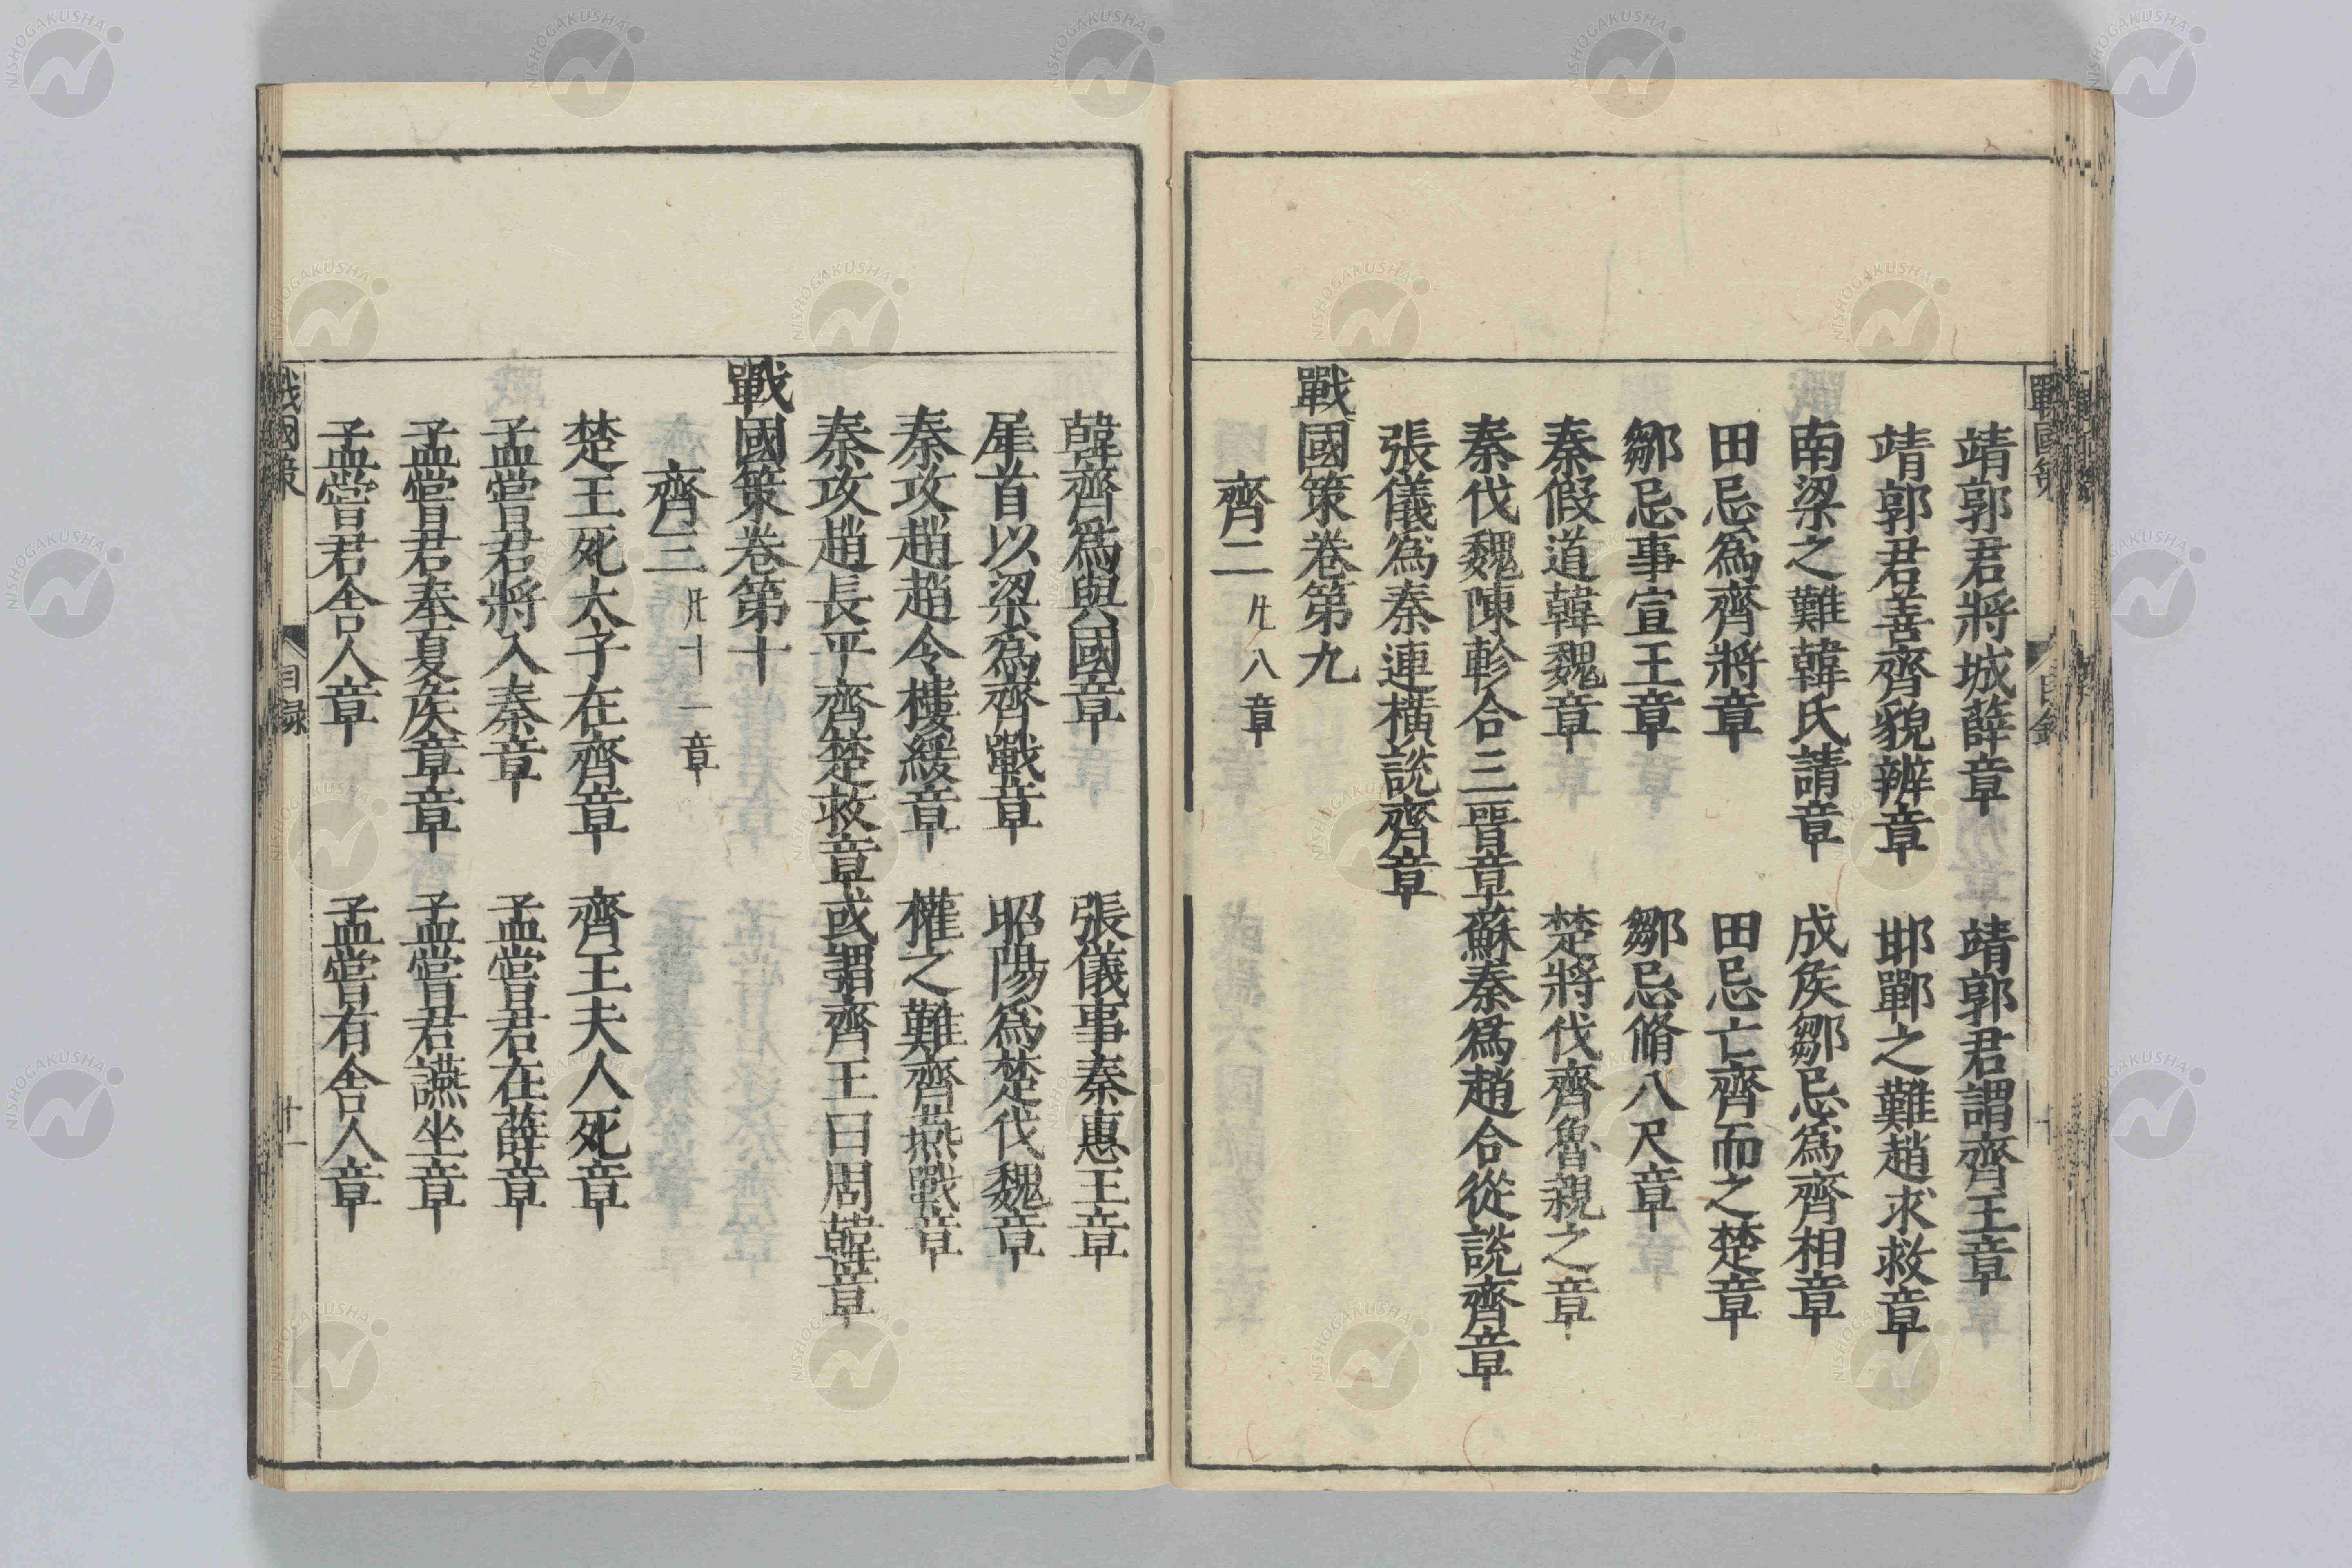 靖郭君將城薛章　靖郭君謂齊王章
靖郭君善齊貌辨章　邯鄲之難趙求救章
南梁之難韓氏請章　成矦鄒忌爲齊相章
田忌爲齊將章　田忌亡齊而之楚章
鄒忌事宣王章　鄒忌脩八尺章
秦假道韓魏章　楚將伐齊魯親之章
秦伐魏陳軫合三晋章　蘇秦爲趙合從說齊章
張儀爲秦連橫說齊章
戰國策卷第九
齊二　凡八章
韓齊爲與國章　張儀事秦惠王章
犀首以梁爲齊戰章　昭陽爲楚伐魏章
秦攻趙趙令樓緩章　權之難齊燕戰章
秦攻趙長平齊楚救章　或謂齊王曰周韓章
戰國策卷第十
齊三　凡十一章
楚王死太子在齊章　齊王夫人死章
孟嘗君將入秦章　孟嘗君在薛章
孟嘗君奉夏矦章章　孟嘗君讌坐章
孟嘗君舍人章　孟嘗有舍人章
戰國策　目録　十一
NISHOGAKUSHA